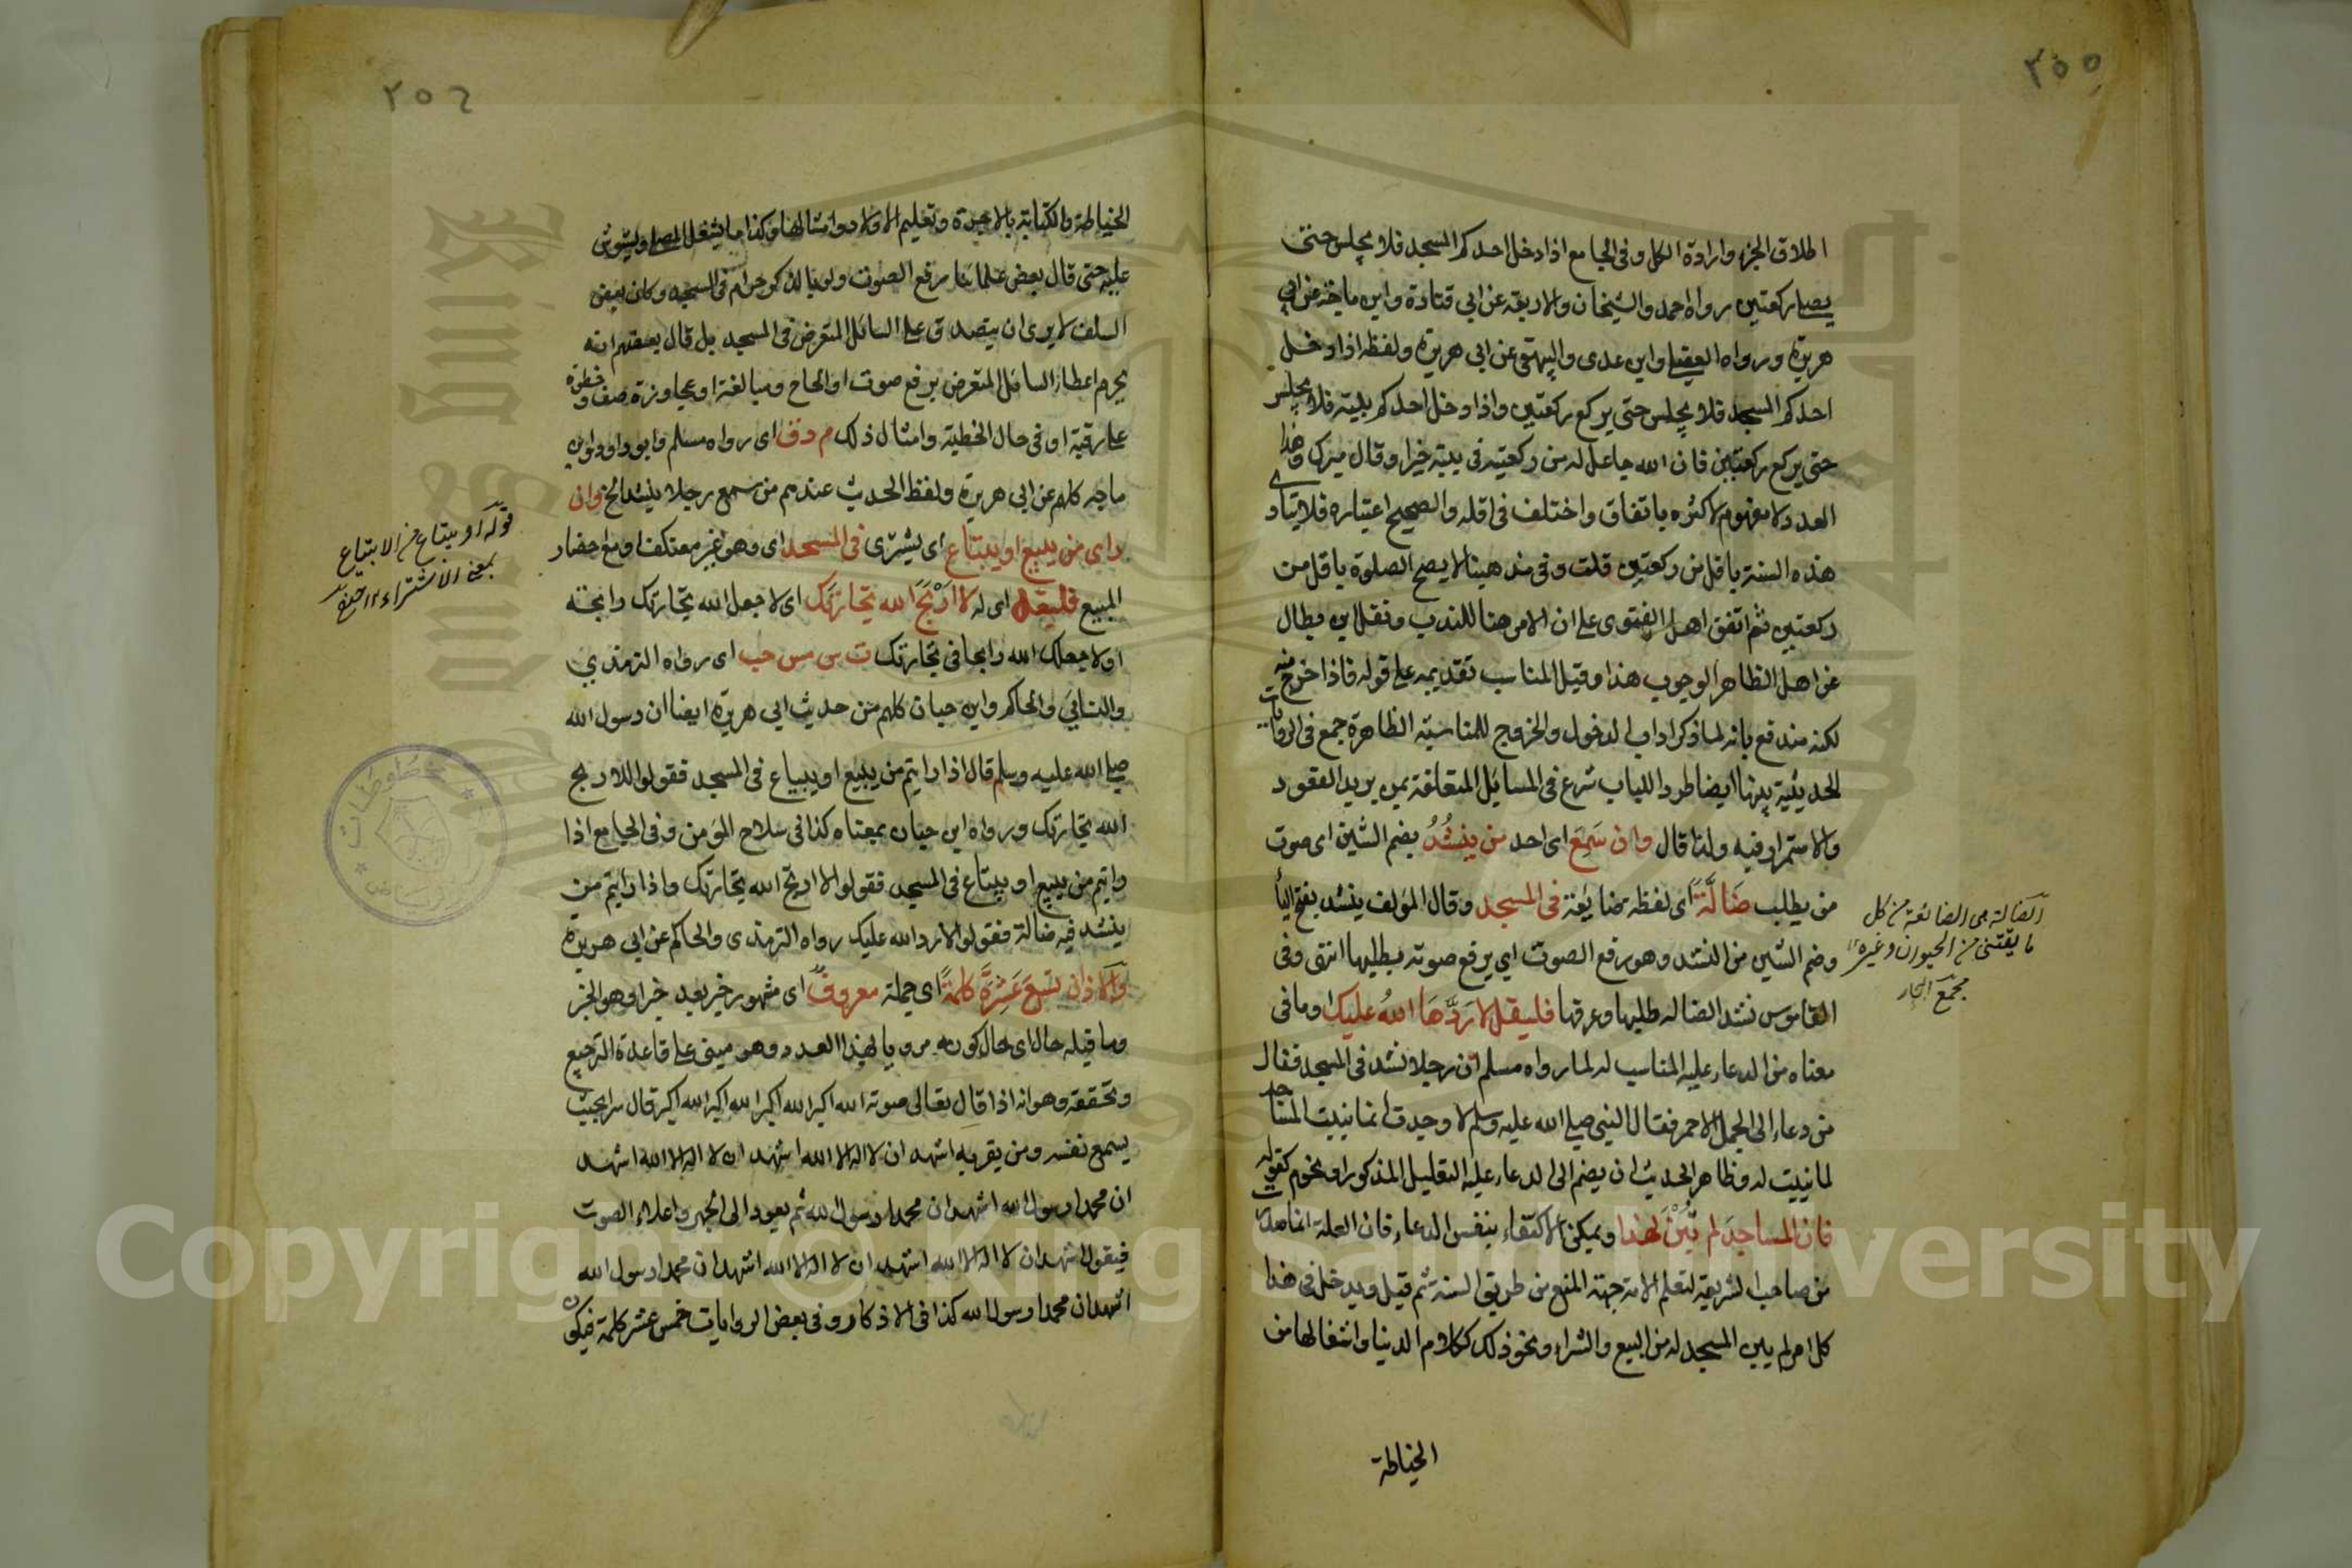 ٢٥٥
اطلاق الجزء وارادة الكل وفى الجامع اذا دخل احدكم المسجد فلا يجلس حتى
يصلى ركعتين رواه احمد والشيخان والاربعة عن ابي قتادة وابن ماجة عن ابي
هريرة ورواه العقيلى وابن عدى والبيهقى عن ابي هريرة ولفظه اذا دخل
احدكم المسجد فلا يجلس حتى يركع ركعتين واذا دخل احدكم بيته فلا يجلس
حتى يركع ركعتين فان الله جاعل له من ركعتيه فى بيته خيرا وقال ميرك وهذا
العدد لا مفهوم لاكثره باتفاق واختلف فى اقله والصحيح اعتباره فلا يتادى
هذه السنة باقل من ركعتين قلت وفى مذهبنا لا يصح الصلوة باقل من
ركعتين ثم اتفق اهل الفتوى على ان الامر هنا للندب ونقل ابن بطال
عن اهل الظاهر الوجوب هذا وقيل المناسب تقديمه على قوله فاذا خرج منه
لكنه مندفع بانه لما ذكر اداب الدخول والخروج للمناسبة الظاهرة جمع فى الروايات
الحديثية بينها ايضا طردا للباب شرع فى المسائل المتعلقة بمن يريد القعود
والاستمرار فيه ولذا قال وان سَمِعَ اى احد من يَنشُدُ بضم الشين اى صوت
من يطلب ضَالَّةً اى لفظه ضائعة فى المسجد وقال المؤلف ينشد بفتح الياء
وضم الشين من النشد وهو رفع الصوت اي يرفع صوته بطلبها انتهى وفى
القاموس نشد الضالة طلبها وعرفها فليقل لا رَدَّهَا اللهُ عليك او ما فى
معناه من الدعاء عليه المناسب له لما رواه مسلم ان رجلا نشد فى المسجد فقال
من دعاء الى الجمل الاحمر فقال النبى صلى الله عليه وسلم لا وجدت انما بنيت المساجد
لما بنيت له وظاهر الحديث ان يضم الى الدعاء عليه التعليل المذكور او نحوه كقوله
فان المساجدَ لم تُبْنَ لهذا ويمكن الاكتفاء بنفس الدعاء فان العلة انما صدرت
من صاحب الشريعة لتعلم الامة جهة المنع من طريق السنة ثم قيل ويدخل فى هذا
كل امر لم يبن المسجد له من البيع والشراء ونحو ذلك ككلام الدنيا واشغالها من
الخياطة
الضالة هى الضائعة من كل
ما يقتنى من الحيوان وغيره ١٢
مجمع البحار
٢٥٦
الخياطة والكتابة بالاجرة وتعليم الاولاد وامثالها وكذا ما يشغل المصلى ويشوش
عليه حتى قال بعض علمائنا رفع الصوت ولو بالذكر حرام فى المسجد وكان بعض
السلف لا يرى ان يتصدق على السائل المتعرض فى المسجد بل قال بعضهم انه
يحرم اعطاء السائل المتعرض برفع صوت او الحاح ومبالغة او مجاوزة صف وخطوة
على رقبة او فى حال الخطبة وامثال ذلك م د ق اى رواه مسلم وابو داود وابن
ماجه كلهم عن ابي هريرة ولفظ الحديث عندهم من سمع رجلا ينشد الخ وان
راى من يبيع او يبتاع اى يشترى فى المسجد اى وهو غير معتكف او مع احضار
المبيع فليقل اى له لا اَرْبَحَ الله تجارَتَك اى لا جعل الله تجارتك رابحة
او لا جعلك الله رابحا فى تجارتك ت س مس حب اى رواه الترمذي
والنسائى والحاكم وابن حبان كلهم من حديث ابي هريرة ايضا ان رسول الله
صلى الله عليه وسلم قال اذا رايتم من يبيع او يبتاع فى المسجد فقولوا لا اربح
الله تجارتك ورواه ابن حبان بمعناه كذا فى سلاح المؤمن وفى الجامع اذا
رايتم من يبيع او يبتاع فى المسجد فقولوا لا اربح الله تجارتك واذا رايتم من
ينشد فيه ضالة فقولوا لا رد الله عليك رواه الترمذى والحاكم عن ابي هريرة
والاذان تِسْعَ عَشَرَةَ كلمةً اى جملة معروفٌ اى مشهور خبر بعد خبر او هو الخبر
وما قبله حال اى حال كونه مرويا لهذا العدد وهو مبنى على قاعدة الترجيع
وتحققه وهو انه اذا قال بعالى صوته الله اكبر الله اكبر الله اكبر الله اكبر قال سرا بحيث
يسمع نفسه ومن يقربه اشهد ان لا اله الا الله اشهد ان لا اله الا الله اشهد
ان محمدا رسول الله اشهد ان محمدا رسول الله ثم يعود الى الجهر واعلاء الصوت
فيقول اشهد ان لا اله الا الله اشهد ان لا اله الا الله اشهد ان محمدا رسول الله
اشهد ان محمدا رسول الله كذا فى الاذكار وفى بعض الروايات خمس عشر كلمة فيكون
قوله او يبتاع من الابتياع
بمعنى الاشتراء ١٢
مخطوطات
الرياض
Copyright © King Saud University